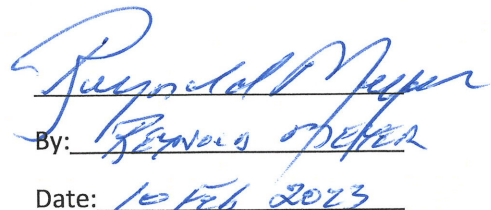 Reynold Meyer
By: REYNOLD MEYER
Date: 10 Feb 2023